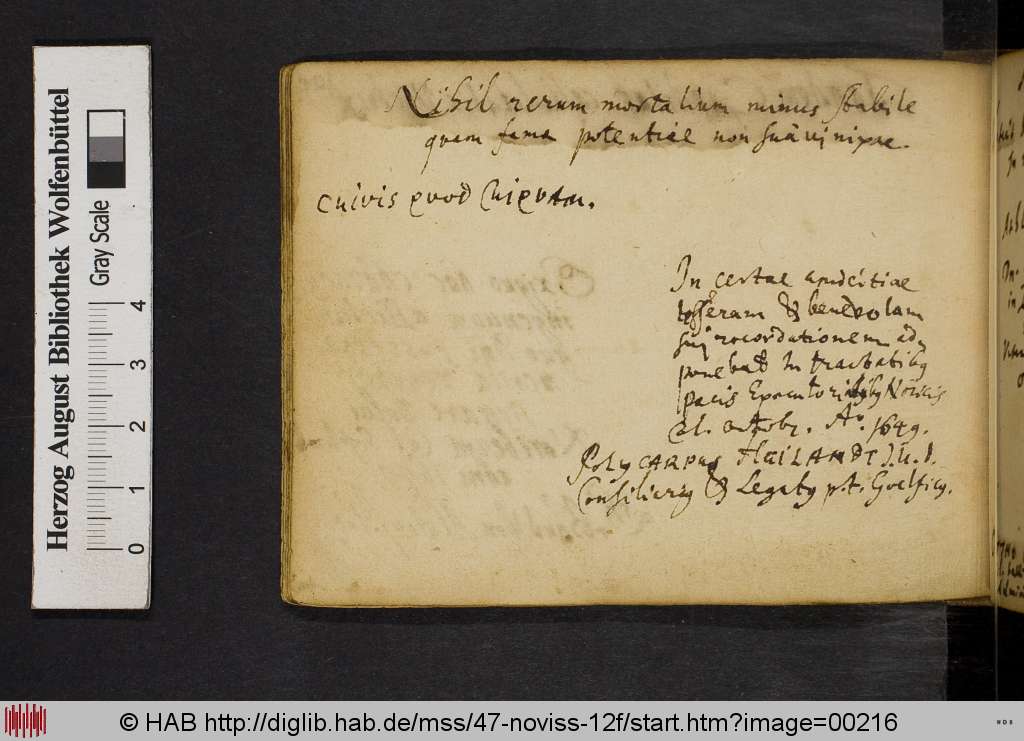 Nihil rerum mortalium minus stabile
quam fama potentiae non suâ vi nixae.
Cuivis quod Cuiquam.
In certae amicitiae
tesseram & benevolam
sui recordationem adp
ponebat In tractatibq
pacis Executori Noricis
21. octobr. Ao. 1649.
PolyCARPus HEILAND J.U.D.
Consiliariq & Legatq p.t. Guelficq.
Herzog August Bibliothek Wolfenbüttel
Gray Scale
0 1 2 3 4
© HAB http://diglib.hab.de/mss/47-noviss-12f/start.htm?image=00216